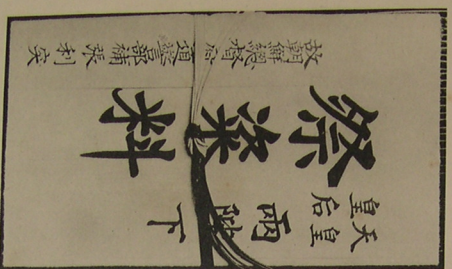 天皇
皇后
兩陛下
祭粢料
故朝鮮總督府道警部補張利